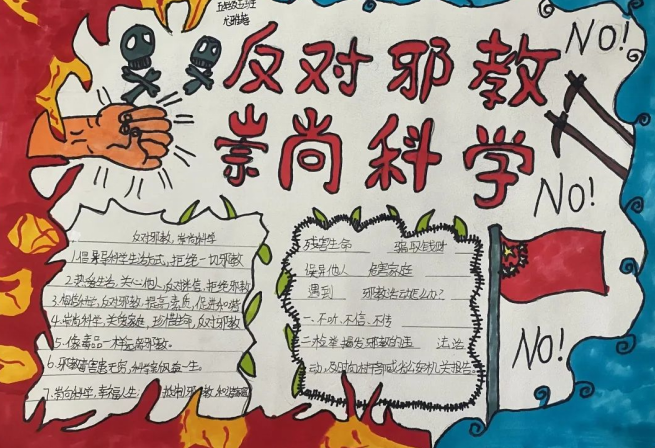 五年级五班
反对邪教
崇尚科学
NO!
NO!
NO!
反对邪教,崇尚科学
1.倡导科学生活方式,拒绝一切邪教
2.热爱生活,关心他人,反对迷信,拒绝邪教
3.相信科学,反对邪教,提高素质,促进和谐
4.崇尚科学,关爱家庭,珍惜生命,反对邪教
5.像毒品一样远离邪教。
6.邪教害害无穷,科学
一生。
7.崇尚科学,幸福人生
抵制邪教
残害生命 骗取钱财
误导他人 危害家庭
遇到 邪教活动怎么办?
一、不听、不信、不传
二检举揭发邪教的违 法活
动,及时向村
公安机关报告。